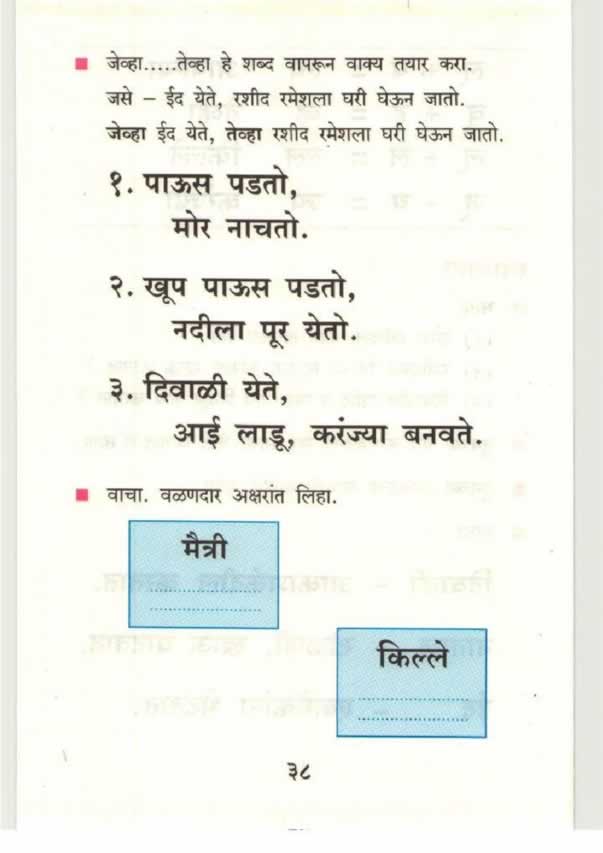 जेव्हा.....तेव्हा हे शब्द वापरून वाक्य तयार करा.
जसे – ईद येते, रशीद रमेशला घरी घेऊन जातो.
जेव्हा ईद येते, तेव्हा रशीद रमेशला घरी घेऊन जातो.
१. पाऊस पडतो,
मोर नाचतो.
२. खूप पाऊस पडतो,
नदीला पूर येतो.
३. दिवाळी येते,
आई लाडू, करंज्या बनवते.
वाचा. वळणदार अक्षरांत लिहा.
मैत्री
किल्ले
३८